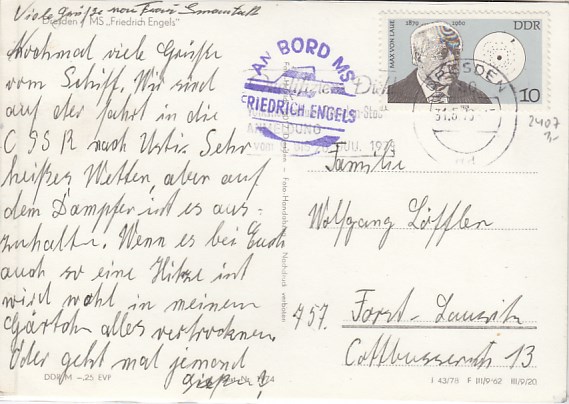 Viele Grüße von Frau
Dresden / MS „Friedrich Engels"
Nochmal viele Grüße
vom Schiff. Wir sind
auf der Fahrt in die
CSSR nach Usti. Sehr
heißes Wetter, aber auf
dem Dampfer ist es aus-
zuhalten. Wenn es bei Euch
auch so eine Hitze ist
wird wohl in meinem
Gärtch alles vertrocknen.
Oder geht mal jemand
gießen!
DDR M –,25 EVP
AN BORD MS
FRIEDRICH ENGELS
MAX VON LAUE
1879 1960
DDR
10
DRESDEN
2407
Familie
Wolfgang Löffler
757. Forst-Lausitz
Cottbusserstr. 13
Foto-Handabzug
Nachdruck verboten
I 43/78 F III/9/62 III/9/20